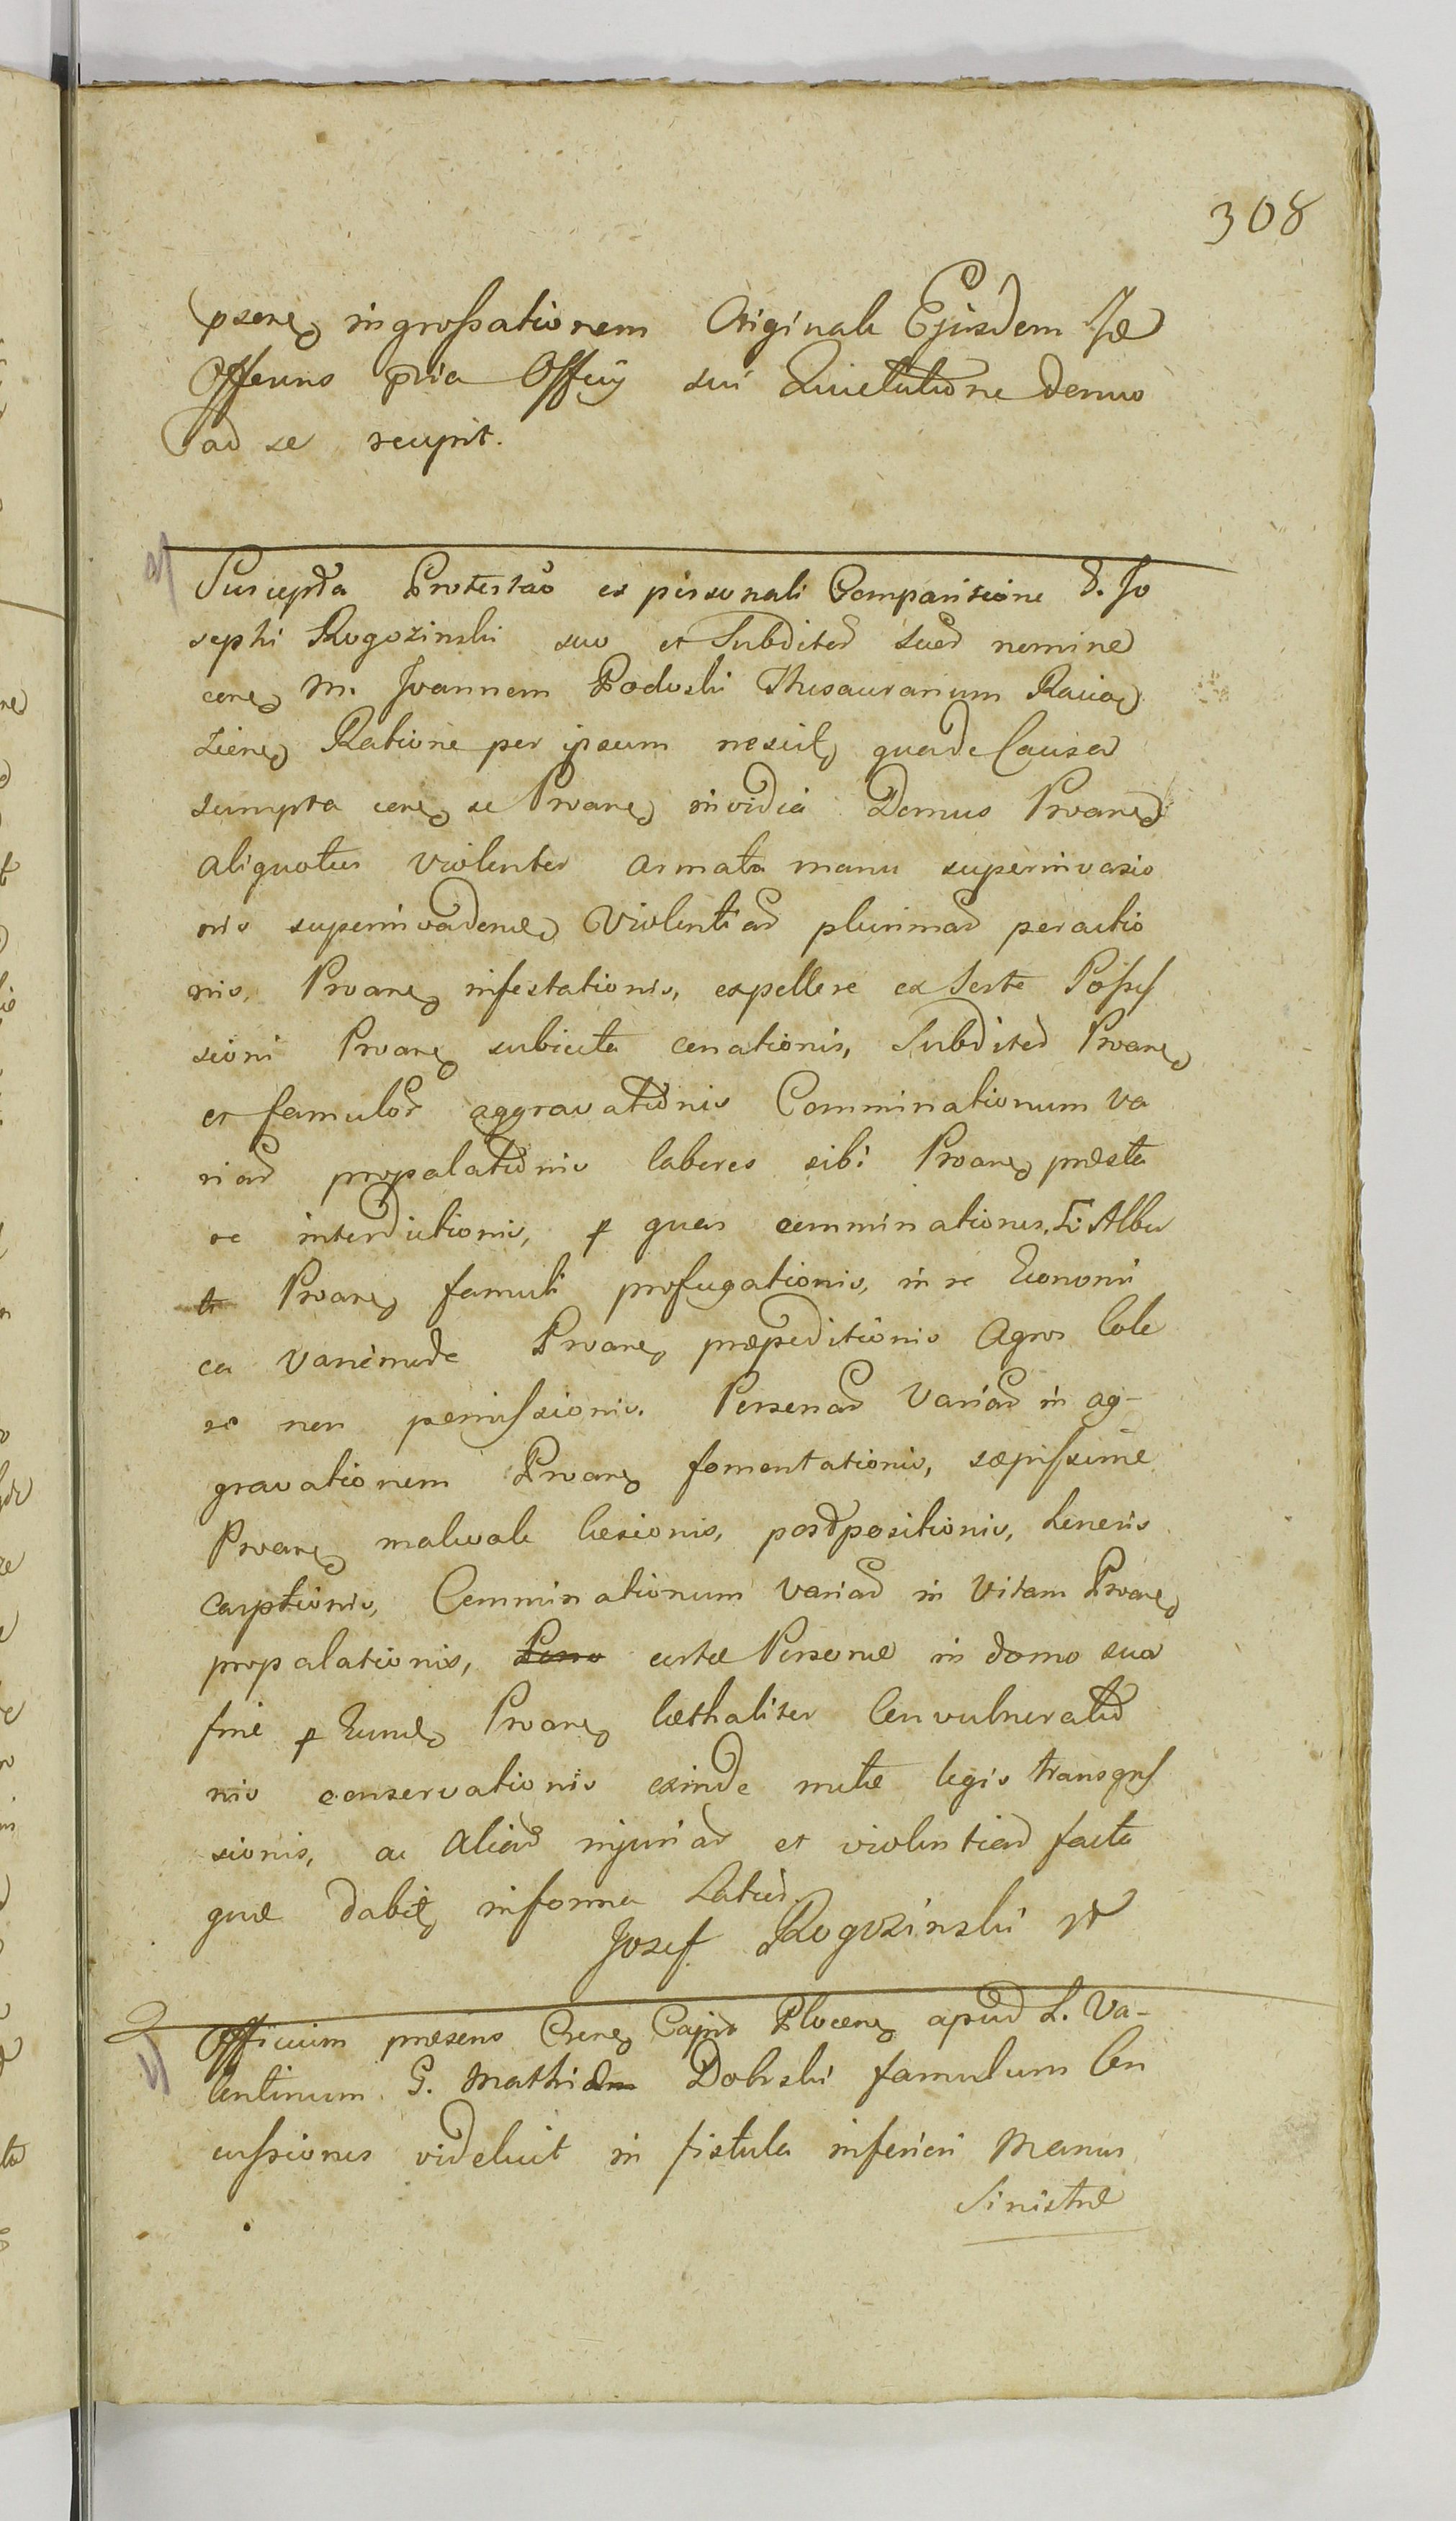 308
psene ingrossationem Originale Ejusdem Iae
Offerens pria Officij sui Quietatione denuo
ad se recepit.
Suscepta Protestao ex personali Comparitione G. Jo
sephi Rogozinski suo et Subditor suor nomine
cone M. Joannem Podoski Thesaurarium Rawa
Ziene Ratione per ipsum nescit quade Causa
sumpta cone se Proane invidia Domus Proane
aliquoties violenter armata manu superinvasio
nis superinvadene Violentiar plurimar peractio
nis, Proane infestationis, expellere ex Sorte Posses
sioni Proane subiecta conationis, Subditor Proane
et famulor aggravationis Comminationum va
riar propalationis labores sibi Proane praesta
re interdictionis, p quas comminationes, L: Alber
ti Proane famuli profugationis, in re Economi
ca varimode Proane praepeditionis Agros Cole
re non permissionis. Personar Variar in ag-
gravationem Proane fomentationis, saepissime
Proane malevole laesionis, postpositionis, honoris
carptionis, Comminationum variar in vitam Proane
propalationis, certae Personae in domo sua
fine p Eund Proane laethaliter Convulneratio
nis conservationis exinde mutae legis transgres
sionis, ac Aliar injuriar et violentiar facta
quae dabit informa Latior.
Josef Rogozinski
Officium praesens Crene Capit Plocene apud L. Va-
lentinum G. Mathiae Dobrski famulum Con
cussiones videlicet in fistula inferiori manus
Sinistrae